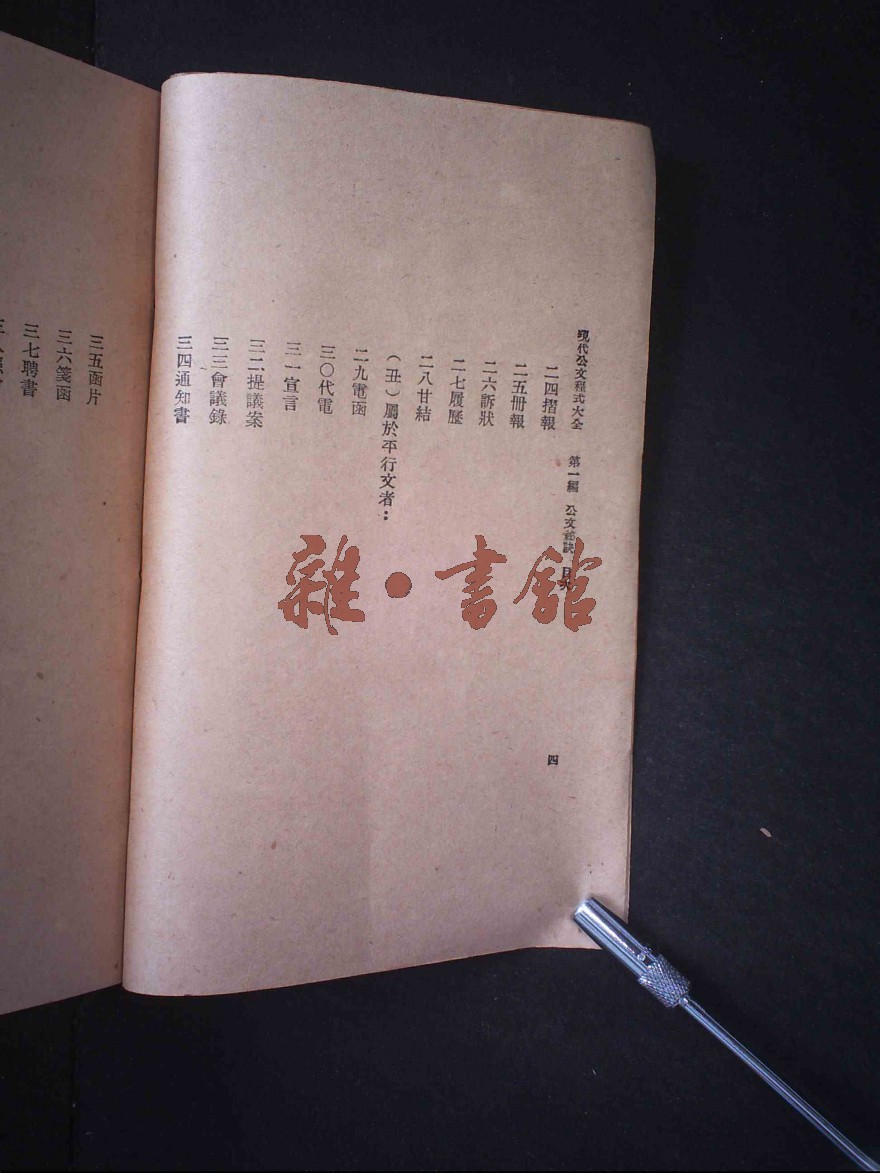 現代公文程式大全 第一編 公文 訣 目次
二四摺報
二五冊報
二六訴狀
二七履歷
二八甘結
(丑)屬於平行文者：
二九電函
三〇代電
三一宣言
三二提議案
三三會議錄
三四通知書
四
三五函片
三六箋函
三七聘書
雜·書館